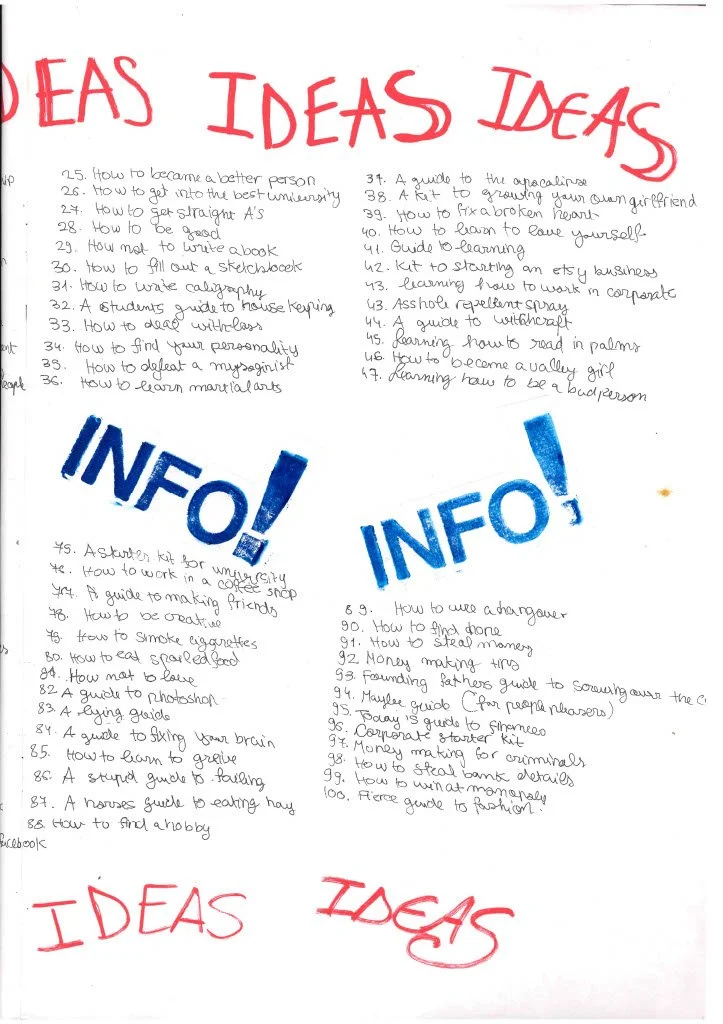 DEAS IDEAS IDEAS
25. How to became a better person
26. How to get into the best university
27. How to get straight A's
28. How to be good
29. How not to write a book
30. How to fill out a sketchbook
31. How to write caligraphy
32. A students guide to house keping
33. How to deal with loss
34. How to find your personality
35. How to defeat a mysoginist
36. How to learn martial arts
37. A guide to the apocalipse
38. A kit to growing your own girlfriend
39. How to fix a broken heart
40. How to learn to love yourself
41. Guide to learning
42. Kit to starting an etsy business
43. learning how to work in corporate
43. Asshole repellent spray
44. A guide to witchcraft
45. Learning how to read in palms
46. How to become a valley girl
47. Learning how to be a bad person
INFO!
INFO!
75. A starter kit for university
76. How to work in a coffee shop
77. A guide to making friends
78. How to be creative
79. How to smoke ciggarettes
80. How to eat spoiled food
81. How not to love
82. A guide to photoshop
83. A lying guide
84. A guide to fixing your brain
85. How to learn to greive
86. A stupid guide to failing
87. A horses guide to eating hay
88. How to find a hobby
facebook
89. How to cure a hangover
90. How to find
91. How to steal money
92. Money making tips
93. Founding fathers guide to screwing over the c
94. guide (for people pleasers)
95. guide to finances
96. Corporate starter kit
97. Money making for criminals
98. How to steal bank details
99. How to win at monopoly
100. Fierce guide to fashion.
IDEAS IDEAS